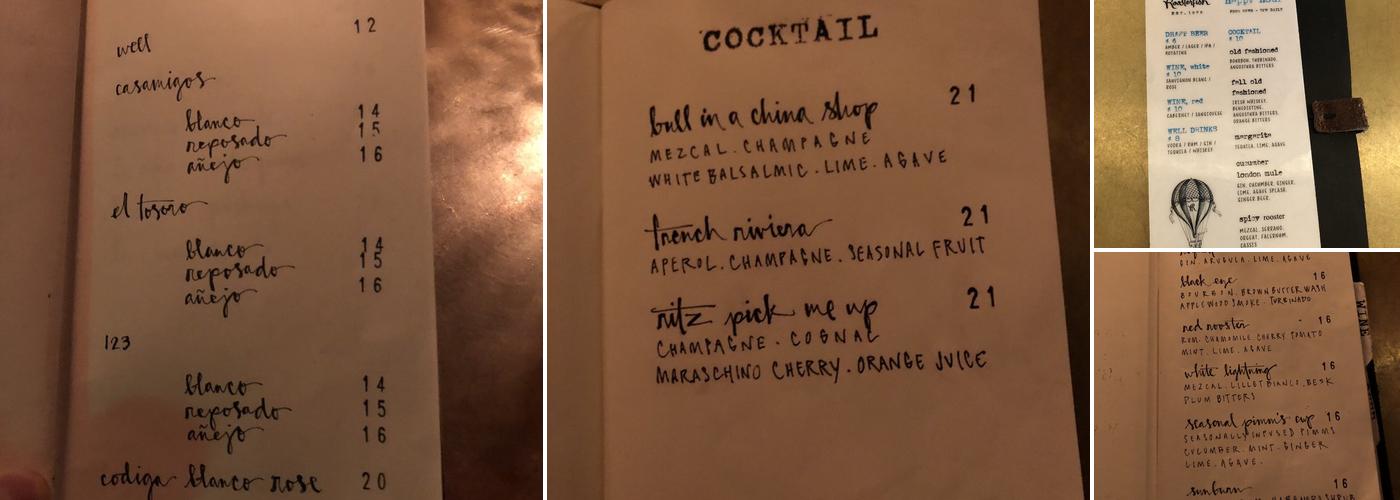 well 12
casamigos
blanco 14
reposado 15
añejo 16
el tosoro
blanco 14
reposado 15
añejo 16
123
blanco 14
reposado 15
añejo 16
codiga blanco rose 20
COCKTAIL
bull in a china shop 21
MEZCAL. CHAMPAGNE
WHITE BALSALMIC. LIME. AGAVE
french riviera 21
APEROL. CHAMPAGNE. SEASONAL FRUIT
ritz pick me up 21
CHAMPAGNE. COGNAC
MARASCHINO CHERRY. ORANGE JUICE
Roosterfish
happy hour
DRAFT BEER
$ 6
AMBER / LAGER / IPA /
ROTATING
WINE, white
$ 10
SAUVIGNON BLANC /
ROSE
WINE, red
$ 10
CABERNET / SANGIOVESE
WELL DRINKS
$ 8
VODKA / RUM / GIN /
TEQUILA / WHISKEY
COCKTAIL
$ 10
old fashioned
BOURBON, TURBINADO,
ANGOSTURA BITTERS
fall old
fashioned
IRISH WHISKEY,
BENEDICTINE,
ANGOSTURA BITTERS,
ORANGE BITTERS
margarita
TEQUILA, LIME, AGAVE
cucumber
london mule
GIN, CUCUMBER, GINGER,
LIME, AGAVE SPLASH,
GINGER BEER.
spicy rooster
MEZCAL, SERRANO,
ORGEAT, FALERNUM,
CASSIS
GIN. ARUGULA. LIME. AGAVE
black eye 16
BOURBON. BROWN BUTTER WASH
APPLEWOOD SMOKE. TURBINADO
red rooster 16
RUM. CHAMOMILE. CHERRY TOMATO
MINT. LIME. AGAVE
white lightning 16
MEZCAL. LILLET BIANCO. BESK
PLUM BITTERS
seasonal pimm's cup 16
SEASONALLY INFUSED PIMMS
CUCUMBER. MINT. GINGER
LIME. AGAVE.
sunburn 16
WINE